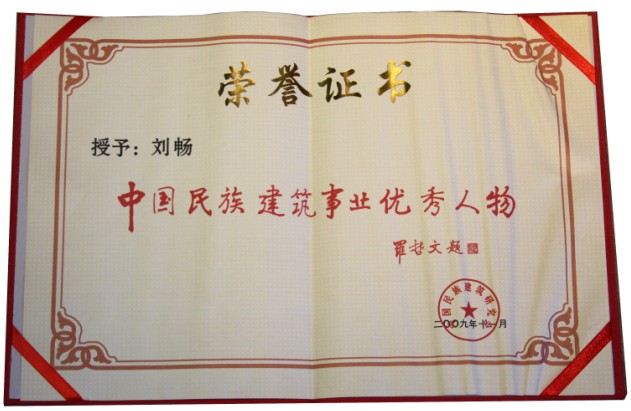 荣誉证书
授予：刘畅
中国民族建筑事业优秀人物
罗哲文题
国民族建筑研究
二〇〇九年十一月